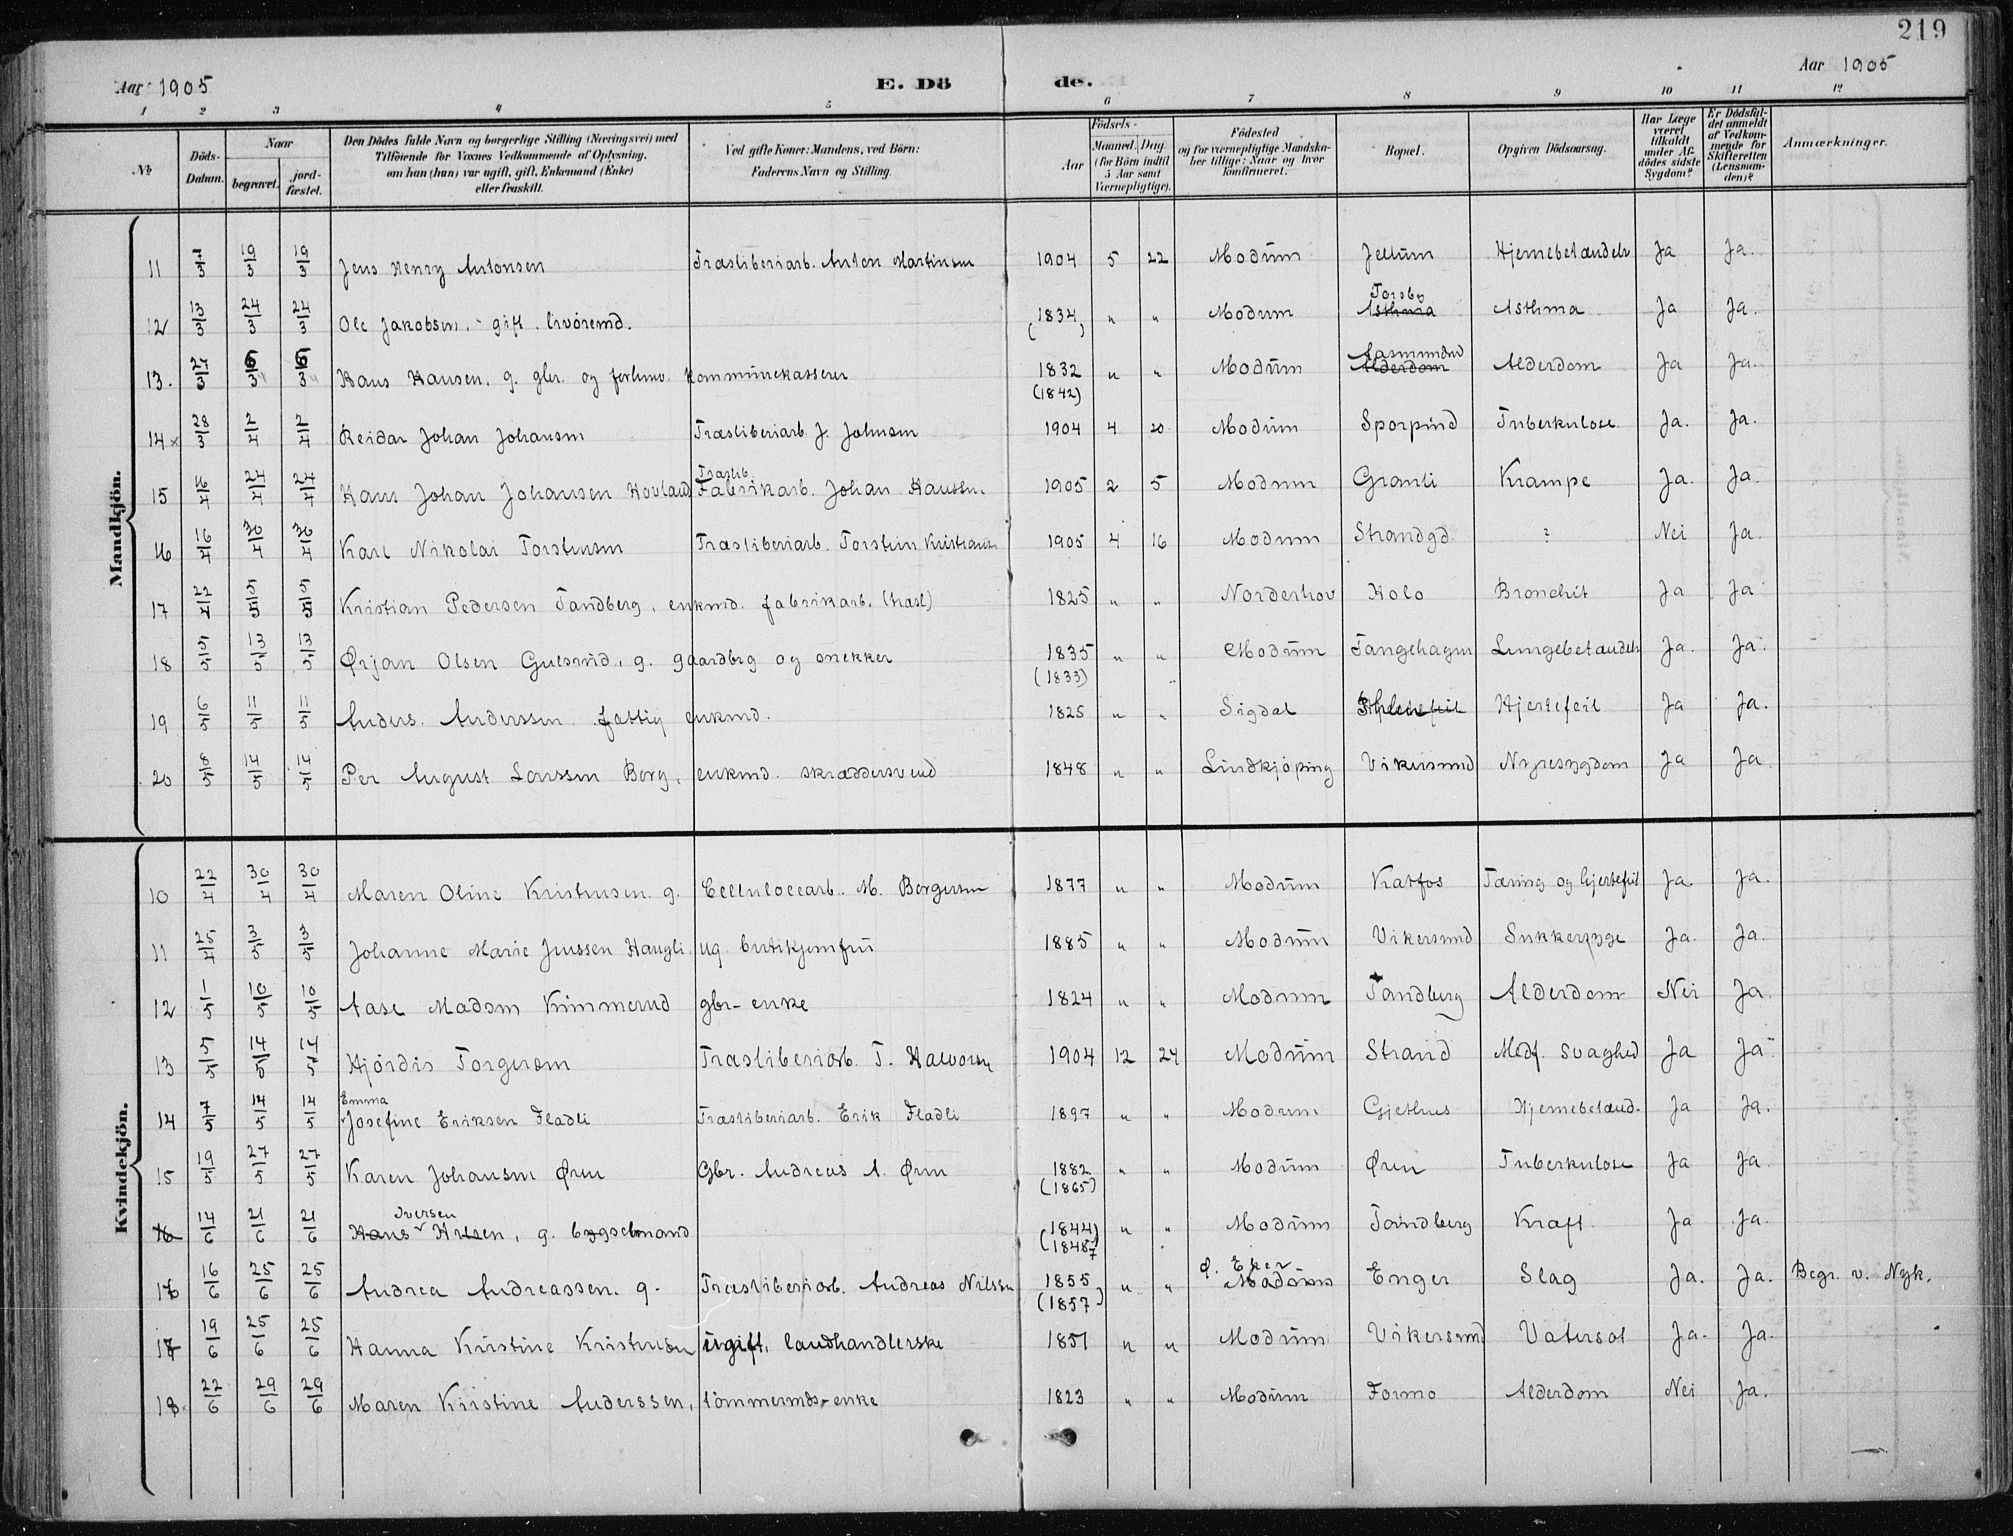 219
Aar 1905 E. Dö de. Aar 1905
1 2 3 4 5 6 7 8 9 10 11 12
No Döds-Datum. Naar begravet. jord-fæstet. Den Dödes fulde Navn og borgerlige Stilling (Næringsvei) med Tilföiende for Voxnes Vedkommende af Oplysning, om han (hun) var ugift, gift, Enkemand (Enke) eller fraskilt. Ved gifte Koner: Mandens, ved Börn: Faderens Navn og Stilling. Födsels- Aar Maaned. Dag. (for Börn indtil 5 Aar samt Værnepligtige). Födested og for værnepligtige Mandskaber tillige: Naar og hvor konfirmeret. Bopæl. Opgiven Dödsaarsag. Har Læge været tilkaldt under Afdödes sidste Sygdom? Er Dödsfaldet anmeldt af Vedkommende for Skifteretten (Lensmanden)? Anmærkninger.
Mandkjön.
11 7/3 19/3 19/3 Jens Henry Antonsen Træsliberiarb. Anton Martinsen 1904 5 22 Modum Jellum Hjernebetændelse Ja Ja.
12 13/3 24/3 24/3 Ole Jakobsen, gift. livöremd. (1834) " " Modum Torsby Asthma Asthma Ja Ja.
13. Hans Hansen, g. gbr. og forhenv. kommunekasserer 1832 (1842) " " Modum Aasmundrud Alderdom Alderdom Ja Ja.
14 x 28/3 2/4 2/4 Reidar Johan Johansen Træsliberiarb. J. Johnsen 1904 4 20. Modum Sporpind Tuberkulose Ja. Ja.
15 16/4 24/4 24/4 Hans Johan Johansen Hovland Træslib. Fabrikarb. Johan Hansen. 1905 2 5 Modum Granli Krampe Ja. Ja.
16 16/4 30/4 30/4 Karl Nikolai Torstensen Træsliberiarb. Torstein Kristiansen 1905 4 16 Modum Strandgd. ? Nei Ja.
17 5/5 5/5 Kristian Pedersen Tandberg, enkmd. fabrikarb. (træsl) 1825 " " Norderhov Kolo Bronchit Ja Ja
18 5/5 13/5 13/5 Ørjan Olsen Gulsrud, g. gaardbrg og snekker 1835 (1833) " " Modum Tangehagen Lungebetændelse Ja. Ja.
19 6/5 11/5 11/5 Anders Anderssen fattig enkmd. 1825 " " Sigdal Hjertefeil Ja Ja.
20 8/5 14/5 14/5 Per August Larssen Borg, enkmd. skræddersvend 1848 " " Lindkjöping Vikersund Nyresygdom Ja Ja.
Kvindekjön.
10 22/4 30/4 30/4 Maren Oline Kristensen g. Cellulocearb. M. Borgersen 1877 " " Modum Katfos Tæring og hjertefeil Ja. Ja.
11 25/4 3/5 3/5 Johanne Marie Jenssen Haugli, ug. butikjomfru 1885 " " Modum Vikersund Sukkersyge Ja. Ja.
12 1/5 10/5 10/5 Aase Madsen Kimmerud gbr-enke 1824 " " Modum Tandberg Alderdom Nei Ja.
13 5/5 14/5 14/5 Hjördis Torgersen Træsliberiarb. T. Halvorsen 1904 12 24 Modum Strand Medf. svaghed Ja Ja.
14 7/5 14/5 14/5 Emma Josefine Eriksen Fladli Træsliberiarb. Erik Fladli 1897 " " Modum Gjethus Hjernebetænd. Ja Ja.
15 19/5 27/5 27/5 Karen Johansen Øren Gbr. Andreas A. Øren 1882 (1865) " " Modum Øren Tuberkulose Ja Ja.
16 14/6 21/6 21/6 Hans Iversen, g. bygselmand (1844) (1847) " " Modum Tandberg Kræft. Ja Ja.
16 16/6 25/6 25/6 Andrea Andreassen. g. Træsliberiarb. Andreas Nilssen 1855 (1857) " " Ø. Eker Modum Enger Slag Ja. Ja. Begr. v. Nyk.
17 19/6 25/6 25/6 Hanna Kristine Kristensen ugift, landhandlerske 1851 " " Modum Vikersund Vatersot Ja. Ja.
18 22/6 29/6 29/6 Maren Kirstine Anderssen, tömmermds-enke 1823 " " Modum Formo Alderdom Nei Ja.